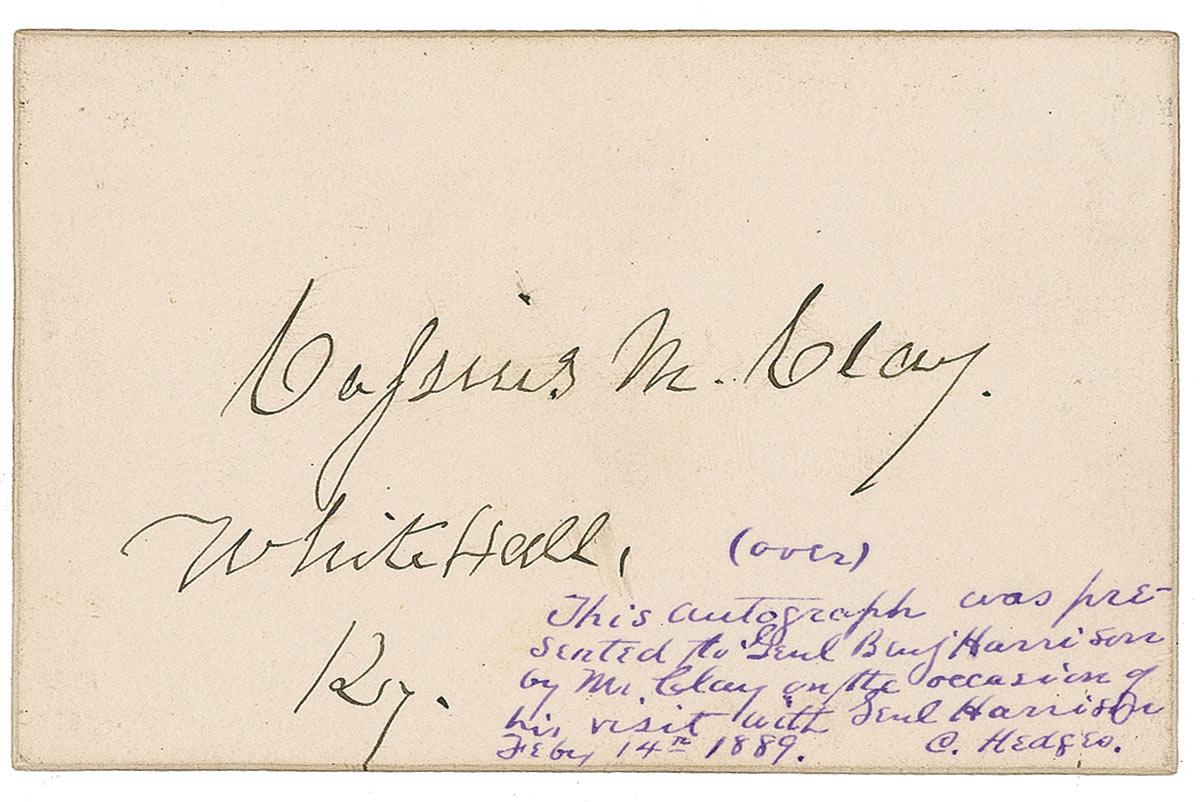 Cassius M. Clay.
White Hall,
Ky.
(over)
This autograph was pre-
sented to Genl Benj Harrison
by Mr. Clay on the occasion of
his visit with Genl Harrison
Feby 14th 1889. C. Hedges.